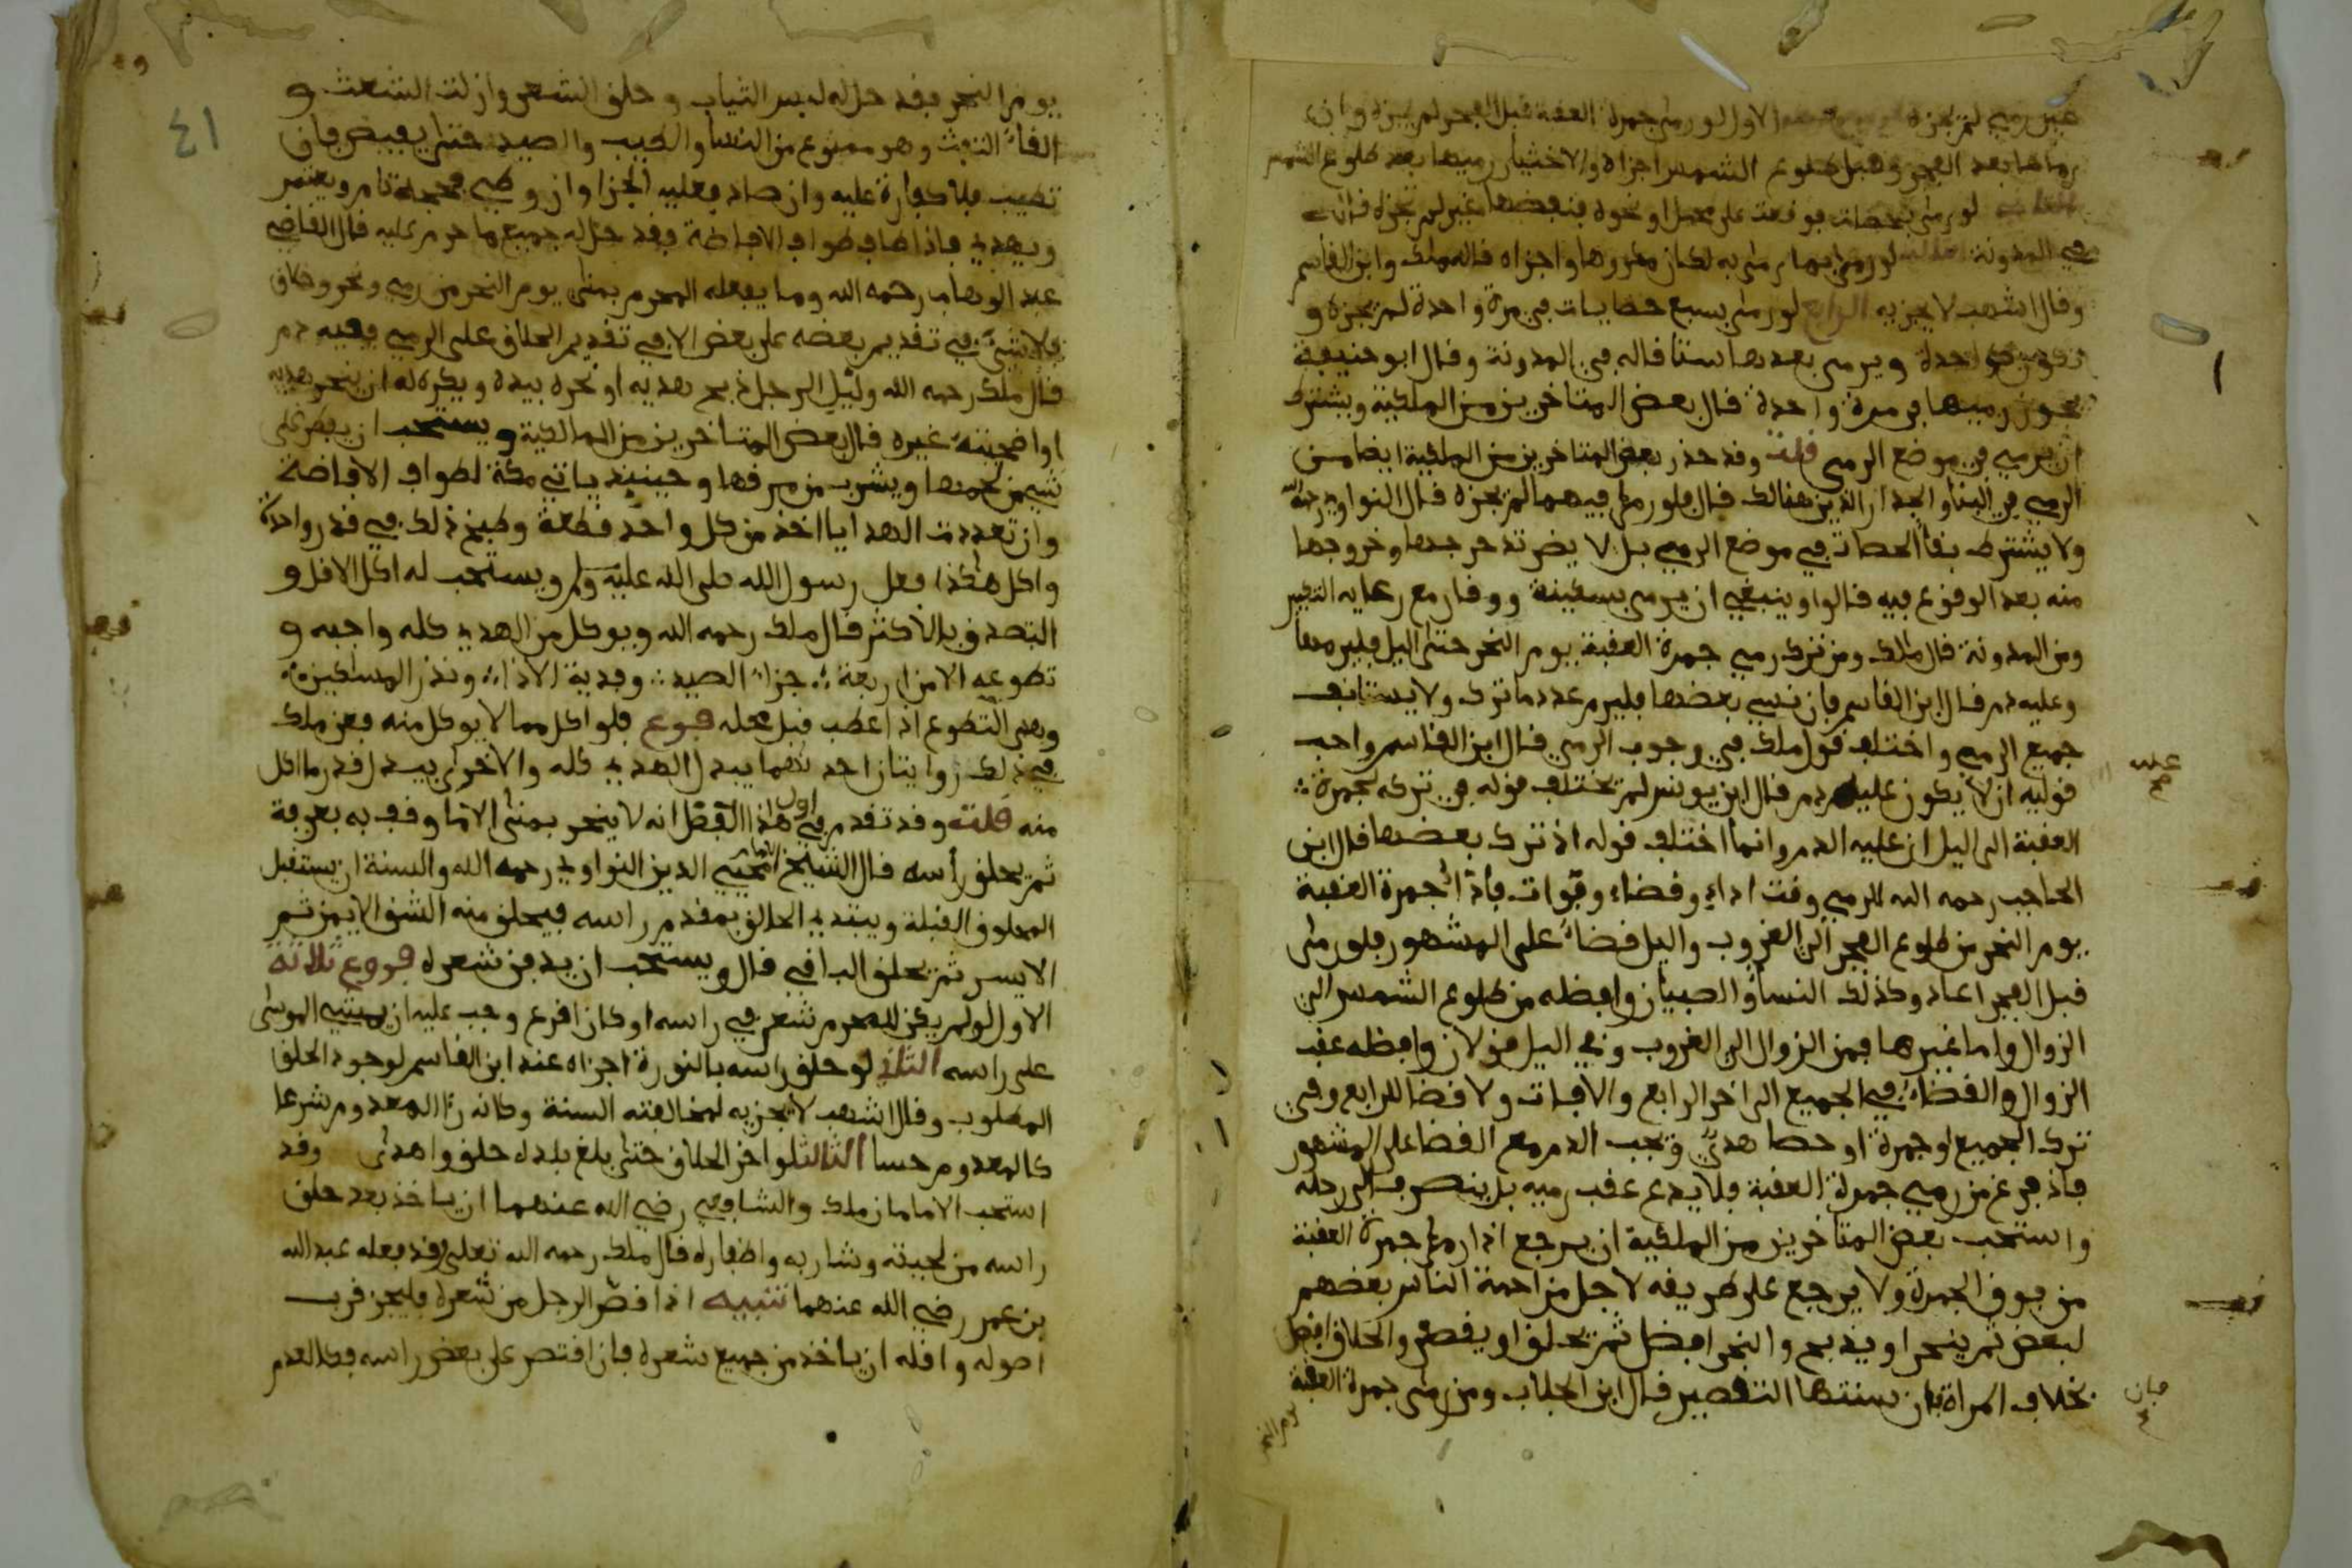 الاول لو رمى جمرة العقبة قبل الفجر لم يجزه وان
رماها بعد الفجر وقبل طلوع الشمس اجزاه والاختيار رميها بعد طلوع الشمس
لو رمى بحصات فوقعت على محمل او نحوه فنفضها غيره لم تجزه
في المدونة لو رمى بما رمى به لكان مكروها واجزاه قاله ملك وابن القاسم
وقال اشهب لا يجزيه الرابع لو رمى بسبع حصايات في مرة واحدة لم يجزه و
تكون كواحدة ويرمى بعدها ستا قاله في المدونة وقال ابو حنيفة
يجوز رميها في مرة واحدة قال بعض المتاخرين من الملكية ويشترط
ان يرمي في موضع الرمي قلت وقد حذر بعض المتاخرين من الملكية ايضا من
الرمي في البنا والجدار الذين هنالك قال فلو رمى فيهما لم يجزه قال النواوي رحمه الله
ولا يشترط بقا الحصات في موضع الرمي بل لا يضر تدحرجها وخروجها
منه بعد الوقوع فيه قالوا وينبغي ان يرمى بسكينة ووقار مع رعايه التكبير
ومن المدونة قال ملك ومن ترك رمي جمرة العقبة يوم النحر حتى اليل فليرمها
وعليه دم قال ابن القاسم فان نسي بعضها فليرم عدد ما ترك ولا يستانف
جميع الرمي واختلف قول ملك في وجوب الرمي قال ابن القاسم واحب
قوليه ان لا يكون عليه دم قال ابن يونس لم يختلف قوله في تركه لجمرة
العقبة الى اليل ان عليه الدم وانما اختلف قوله اذ ترك بعضها قال ابن
الحاجب رحمه الله للرمي وقت اداء وقضاء وفوات فاداء جمرة العقبة
يوم النحر من طلوع الفجر الى الغروب واليل قضاء على المشهور فلو رمى
قبل الفجر اعاد وكذلك النسا والصبيان وافضله من طلوع الشمس الى
الزوال واما غيرها فمن الزوال الى الغروب وفي اليل قولان وافضله عقب
الزوال والقضاء في الجميع الى اخر الرابع والافات ولا قضا للرابع وفي
ترك الجميع او جمرة او حصا هدي وتجب الدم مع القضا على المشهور
فاذ فرغ من رمي جمرة العقبة فلا يدع عقب رميه بل ينصرف الى رحله
واستحب بعض المتاخرين من الملكية ان يرجع اذا رمى جمرة العقبة
من فوق الجمرة ولا يرجع على طريقه لاجل مزاحمة الناس بعضهم
لبعض ثم ينحر او يذبح والنحر افضل ثم يحلق او يقصر والحلاق افضل
بخلاف المراة فان سنتها التقصير قال ابن الجلاب ومن رمى جمرة العقبة
يوم النحر
عليه
فان
٤١
يوم النحر فقد حل له لبس الثياب وحلق الشعر وازلت الشعث و
القاء التفث وهو ممنوع من النسا والطيب والصيد حتى يفيض فان
تطيب فلا كفارة عليه وان صاد فعليه الجزا وان وطي فحجه تام ويعتمر
ويهدي فاذا طاف طواف الافاضة فقد حل له جميع ما حرم عليه قال القاضي
عبد الوهاب رحمه الله وما يفعله المحرم بمنى يوم النحر من رمي ونحر وحلاق
فلا شيء في تقديم بعضه على بعض الا في تقديم الحلاق على الرمي ففيه دم
قال ملك رحمه الله وليل الرجل ذبح هديه او نحره بيده ويكره له ان ينحر هديه
او اضحيته غيره قال بعض المتاخرين من المالكية ويستحب ان يفطر على
شي من لحمها ويشرب من مرقها وحينيذ ياتي مكة لطواف الافاضة
وان تعددت الهدايا اخذ من كل واحد قطعة وطبخ ذلك في قدر واحدة
واكل هكذا فعل رسول الله صلى الله عليه وسلم ويستحب له اكل الاقل و
التصدق بالاكثر قال ملك رحمه الله ويوكل من الهدي كله واجبه و
تطوعه الا من اربعة جزاء الصيد وفدية الاذاء ونذر المساكين
وهدي التطوع اذ اعطب قبل محله فرع فلو اكل مما لا يوكل منه فعن ملك
في ذلك روايتان احدهما يبدل الهدي كله والاخرى يبدل قدر ما اكل
منه قلت وقد تقدم في اول هذا الفصل انه لا ينحر بمنى الا ما وقف به بعرفة
ثم يحلق رأسه قال الشيخ الامام محيي الدين النواوي رحمه الله والسنة ان يستقبل
المحلوق القبلة ويبتدي الحالق بمقدم راسه فيحلق منه الشق الايمن ثم
الايسر ثم يحلق الباقي قال ويستحب ان يدفن شعره فروع ثلاثة
الاول لو لم يكن للمحرم شعر في راسه او كان اقرع وجب عليه ان يمشي الموسى
على راسه الثاني لو حلق راسه بالنورة اجزاه عند ابن القاسم لوجود الحلق
المطلوب وقال اشهب لا يجزيه لمخالفته السنة وكانه راا المعدوم شرعا
كالمعدوم حسا الثالث لو اخر الحلاق حتى بلغ بلده حلق واهدى وقد
استحب الامامان ملك والشافعي رضي الله عنهما ان ياخذ بعد حلق
راسه من لحيته وشاربه واظفاره قال ملك رحمه الله تعلى وقد فعله عبد الله
بن عمر رضي الله عنهما تنبيه اذا قصر الرجل من شعره فليجز قرب
اصوله واقله ان ياخذ من جميع شعره فان اقتصر على بعض راسه فكالعدم